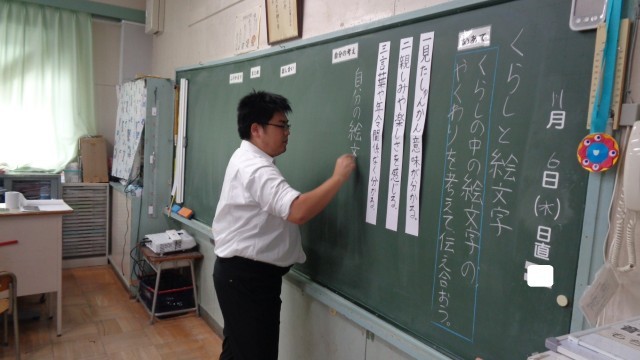 11月6日(木)日直
くらしと絵文字
めあて
くらしの中の絵文字の
やくわりを考えて伝え合おう。
一見たしゅんかん意味が分かる。
二親しみや楽しさを感じる。
三言葉や年令関係なく分かる。
自分の考え
自分の絵文
まとめ